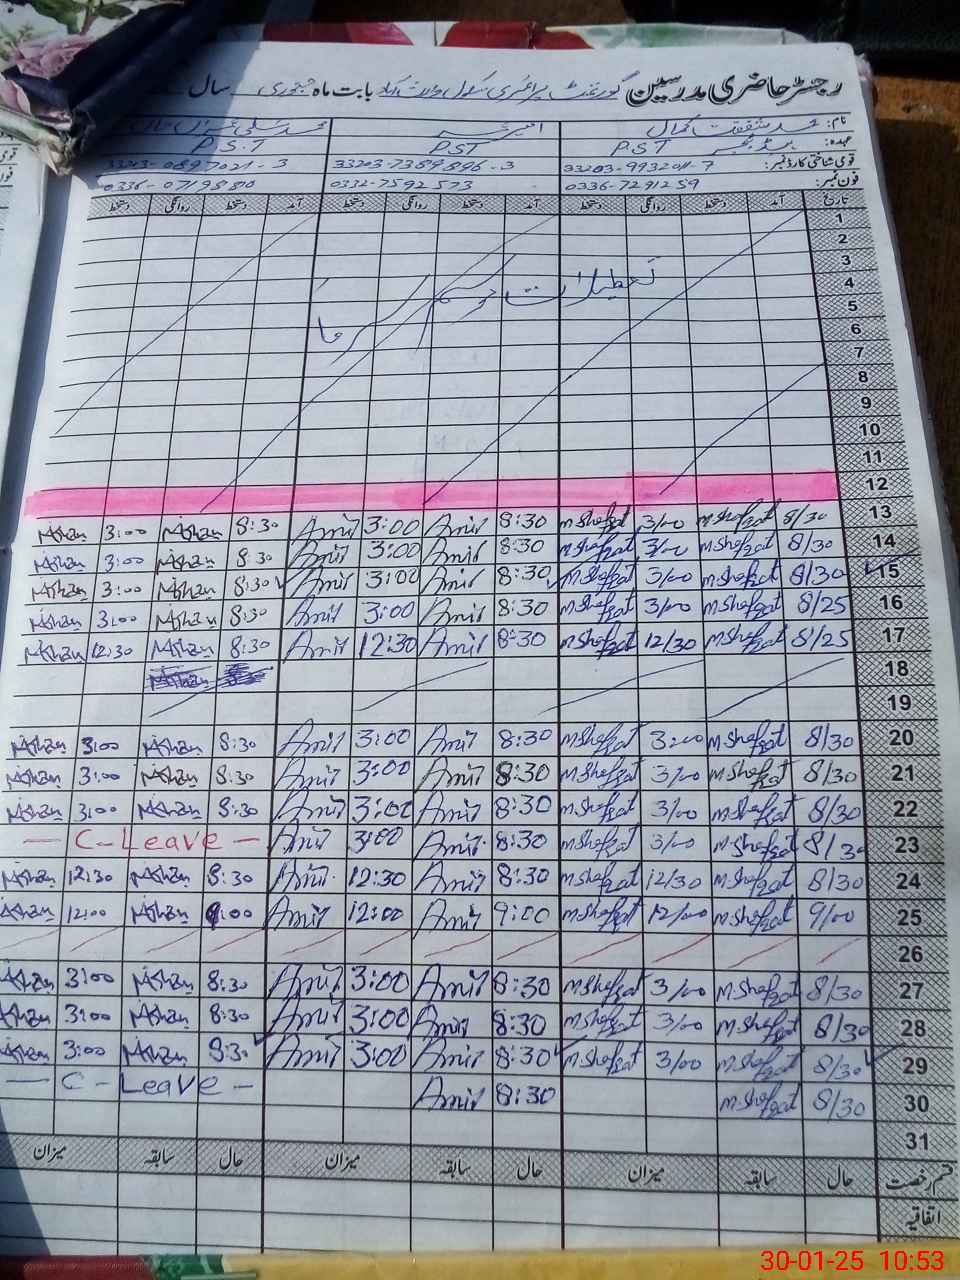 رجسٹر حاضری مدرسین گورنمنٹ پرائمری سکول بابت ماہ جنوری سال
نام: محمد شفقت کمال
عہدہ: P.S.T PST P.S.T
قومی شناختی کارڈ نمبر: 33203-7389896-3
فون نمبر: 0336-7291259 0332-7592573 0336-07198810
تاریخ آمد دستخط روانگی دستخط آمد دستخط روانگی دستخط آمد دستخط روانگی دستخط
1
2
3
4 تعطیلات موسم سرما
5
6
7
8
9
10
11
12
13 8/30 M Shafqat 3/00 M Shafqat 8:30 Amir 3:00 Amir 8:30 3:00
14 8/30 M Shafqat 3/00 M Shafqat 8:30 Amir 3:00 Amir 8:30 3:00
15 8/30 M Shafqat 3/00 M Shafqat 8:30 Amir 3:00 Amir 8:30 3:00
16 8/25 M Shafqat 3/00 M Shafqat 8:30 Amir 3:00 Amir 8:30 3:00
17 8/25 M Shafqat 12/30 M Shafqat 8:30 Amir 12:30 Amir 8:30 12:30
18
19
20 8/30 M Shafqat 3:00 M Shafqat 8:30 Amir 3:00 Amir 8:30 3:00
21 8/30 M Shafqat 3/00 M Shafqat 8:30 Amir 3:00 Amir 8:30 3:00
22 8/30 M Shafqat 3/00 M Shafqat 8:30 Amir 3:00 Amir 8:30 3:00
23 8/30 M Shafqat 3/00 M Shafqat 8:30 Amir 3:00 Amir — C-Leave —
24 8/30 M Shafqat 12/30 M Shafqat 8:30 Amir 12:30 Amir 8:30 12:30
25 9/00 M Shafqat 12/00 M Shafqat 9:00 Amir 12:00 Amir 9:00 12:00
26
27 8/30 M Shafqat 3/00 M Shafqat 8:30 Amir 3:00 Amir 8:30 3:00
28 8/30 M Shafqat 3/00 M Shafqat 8:30 Amir 3:00 Amir 8:30 3:00
29 8/30 M Shafqat 3/00 M Shafqat 8:30 Amir 3:00 Amir 8:30 3:00
30 8/30 M Shafqat 8:30 Amir — C-Leave —
31
قسم رخصت حال سابقہ میزان حال سابقہ میزان حال سابقہ میزان
اتفاقیہ
30-01-25 10:53